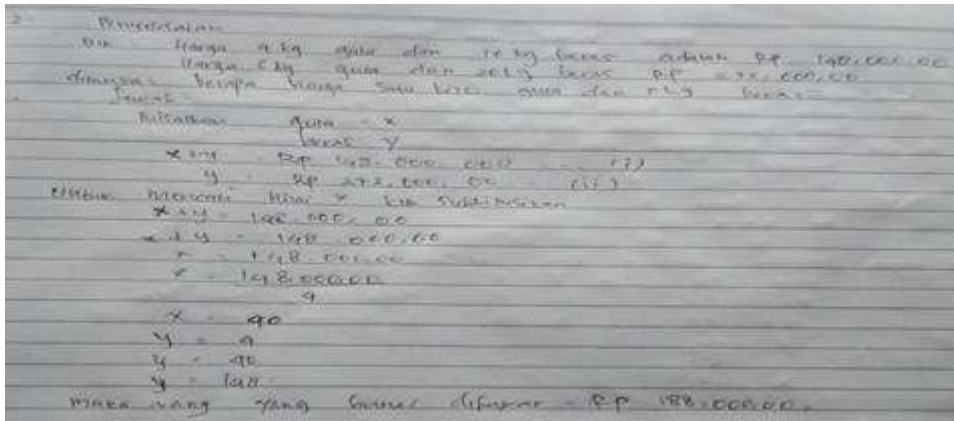 2. Penyelesaian
Dik Harga 4 kg gula dan 10 kg beras adalah Rp 148.000,00
Harga 6 kg gula dan 20 kg beras Rp 272.000,00
ditanya berapa harga satu kilo gula dan 1 kg beras
Jawab
Misalkan gula = x
beras y
x + y = Rp 148.000,000 ... (i)
y = Rp 272.000,00 ... (ii)
Untuk mencari nilai x kita subtitusikan
x + y = 148.000,00
x + y = 148.000,00
x = 148.000,00
x = 148.000,00
4
x = 40
y = 4
y = 40
y = 148
maka uang yang harus dibayar = Rp 188.000,00.